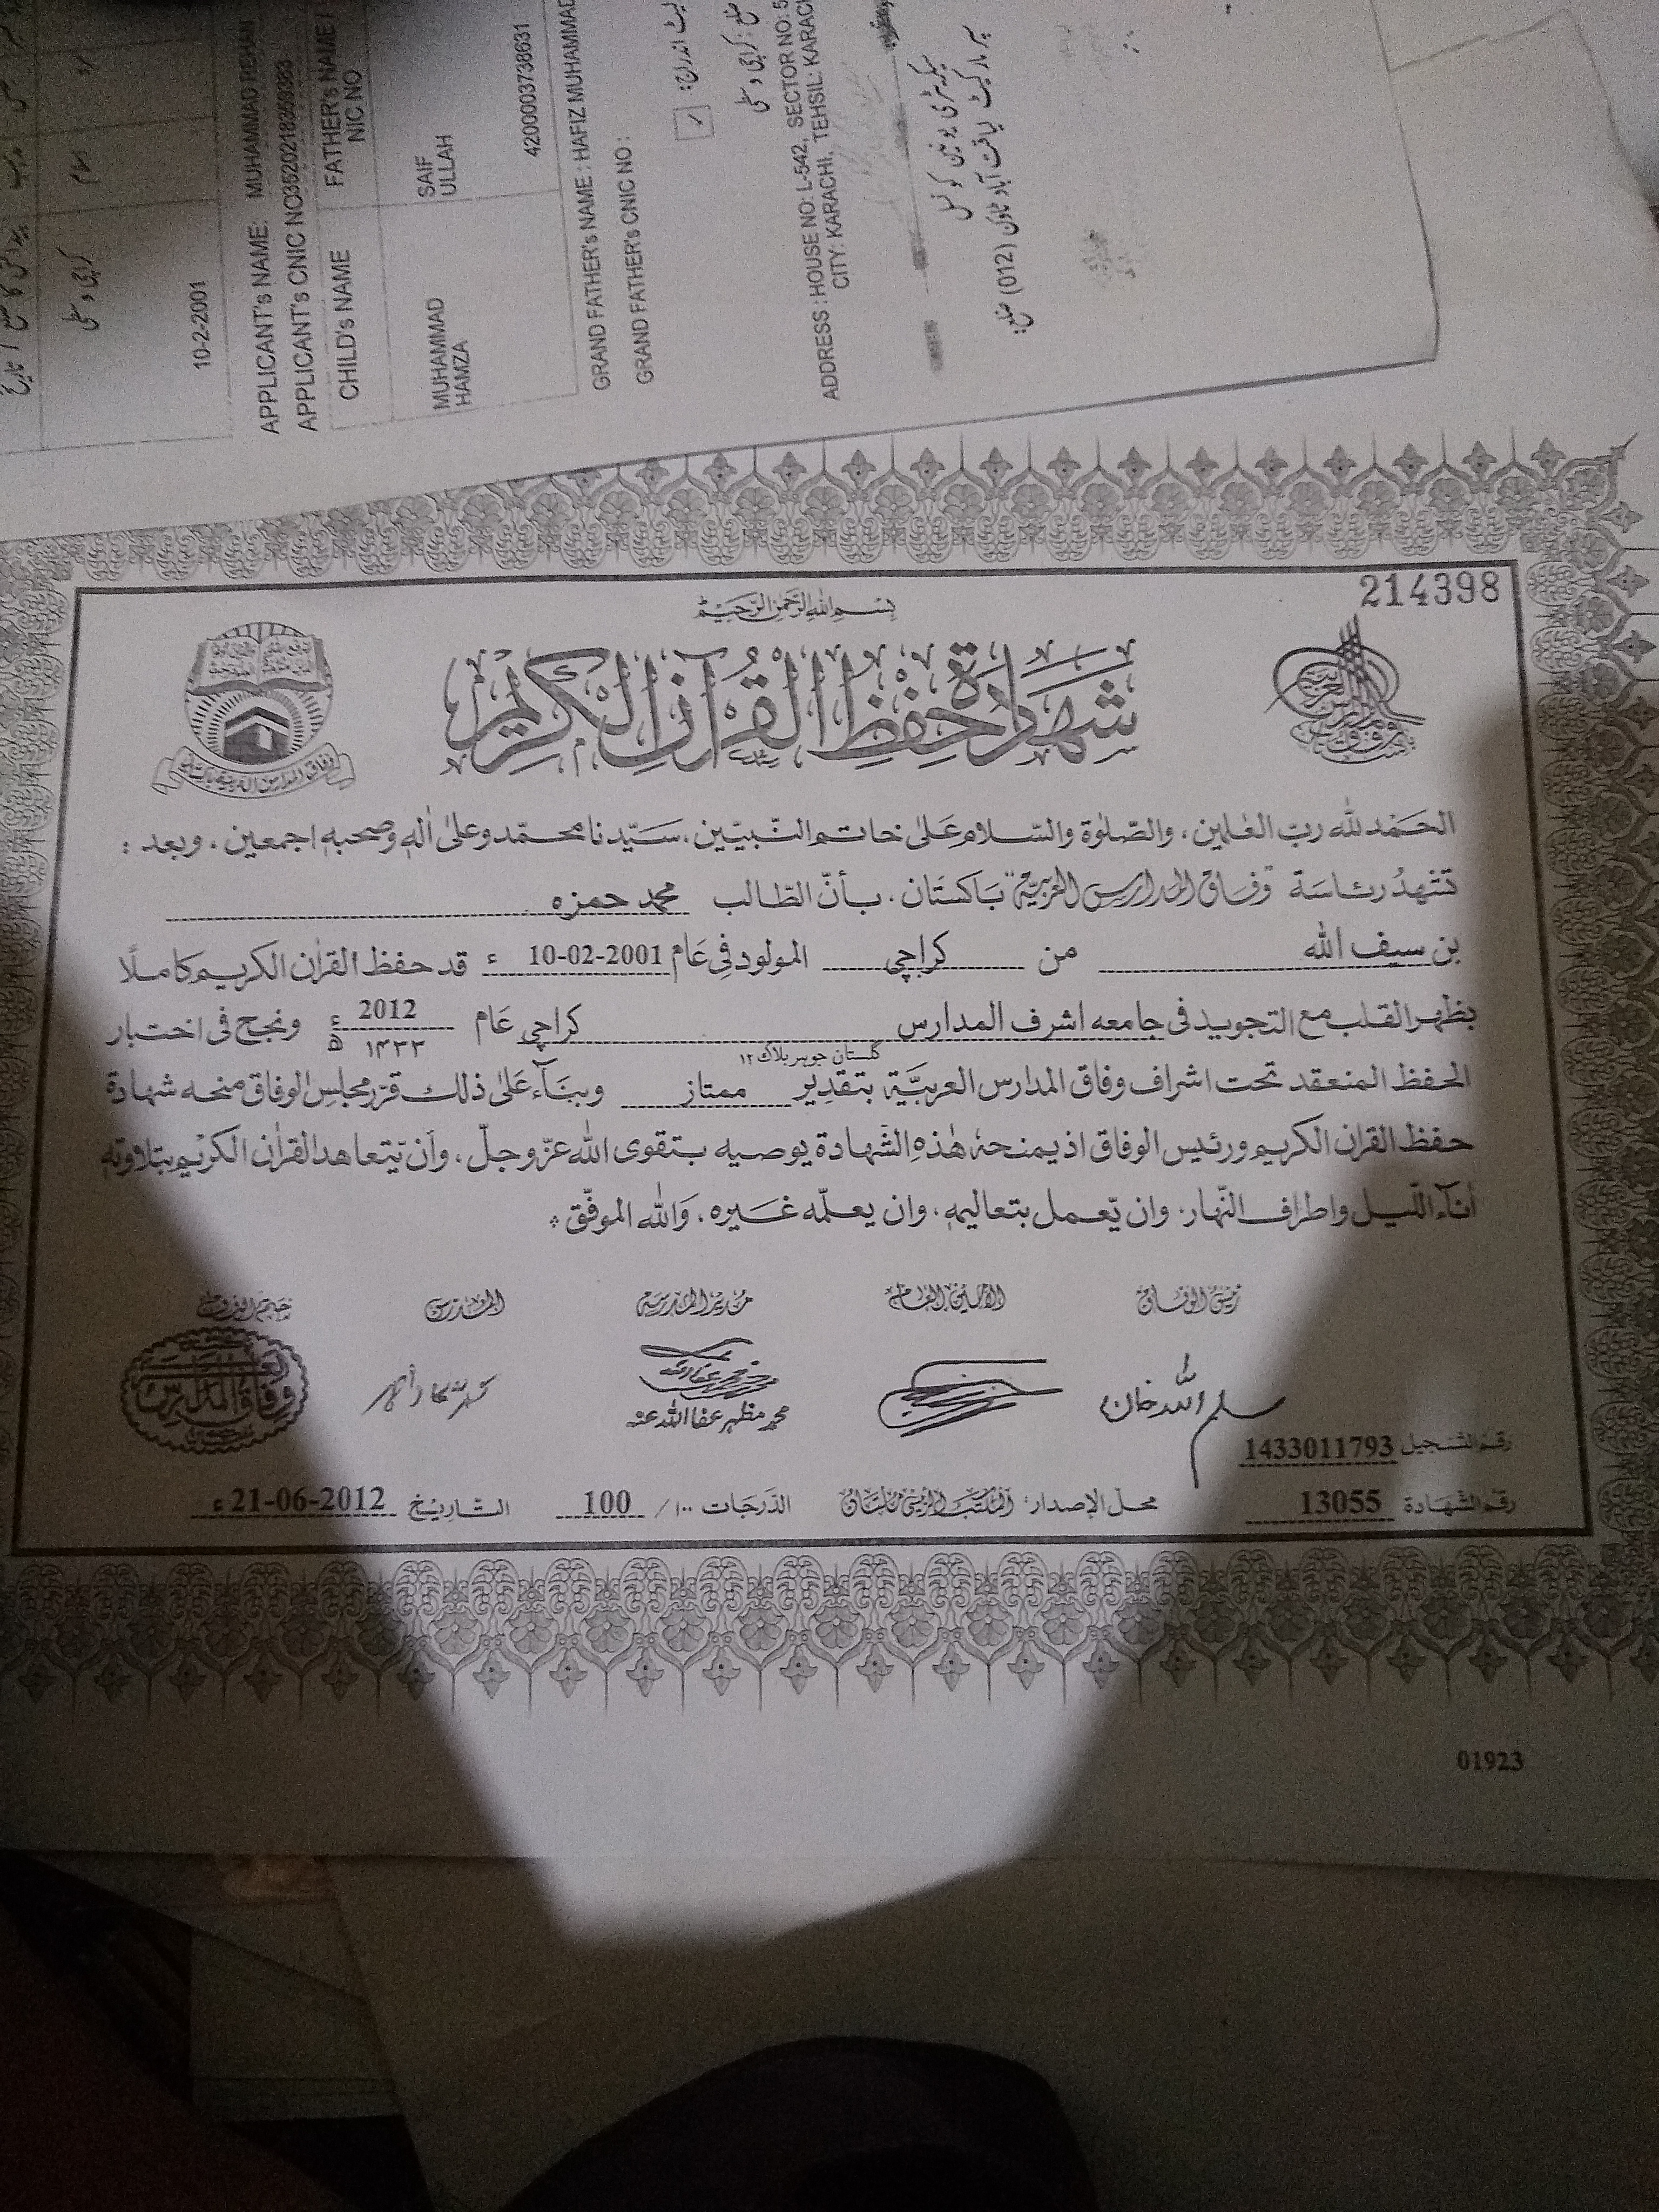 10-2-2001
APPLICANT's NAME: MUHAMMAD REHAN
APPLICANT's CNIC NO
CHILD's NAME
FATHER's NAME /
NIC NO
MUHAMMAD
HAMZA
SAIF
ULLAH
4200003738631
GRAND FATHER's NAME : HAFIZ MUHAMMAD
GRAND FATHER's CNIC NO :
ADDRESS : HOUSE NO: L-542, SECTOR NO: 5
CITY: KARACHI, TEHSIL: KARACHI
214398
بسم الله الرحمن الرحيم
شهادة حفظ القرآن الكريم
وفاق المدارس العربية باكستان
الحمد لله رب العٰلمين، والصّلوٰة والسّلام علىٰ خاتم النّبيّين، سيّدنا محمّد وعلىٰ اٰلهٖ وصحبهٖ اجمعين، وبعد :
تشهدُ رئاسة "وفاق المدارس العربيّة" باكستان، بأنّ الطّالب محمد حمزه
بن سيف الله من كراچي المولود في عام 10-02-2001 ء قد حفظ القراٰن الكريم كاملًا
بظهر القلب مع التجويد في جامعه اشرف المدارس كراچي عام 2012 ء ۱۴۳۳ ھ ونجح في اختبار
گلستان جوہر بلاک ۱۲
الحفظ المنعقد تحت اشراف وفاق المدارس العربيّة بتقدير ممتاز وبنآء علىٰ ذلك قرّر مجلس الوفاق منحه شهادة
حفظ القراٰن الكريم ورئيس الوفاق اذ يمنحهٗ هٰذهِ الشّهادة يوصيه بتقوى الله عزّ وجلّ، وأن يّتعاهد القراٰن الكريم بتلاوتهٖ
اٰناء اللّيل واطراف النّهار، وان يّعمل بتعاليمهٖ، وان يعلّمه غيره، والله الموفّق
رئيس الوفاق الأمين العام مدير المدرسة المدرس ختم الوفاق
سليم الله خان
محمد مظهر عفا الله عنه
وفاق المدارس
رقم التسجيل 1433011793
رقم الشهادة 13055 محل الإصدار: المكتب الرئيسي ملتان الدّرجات ۱۰۰/ 100 التّاريخ 21-06-2012 ء
01923